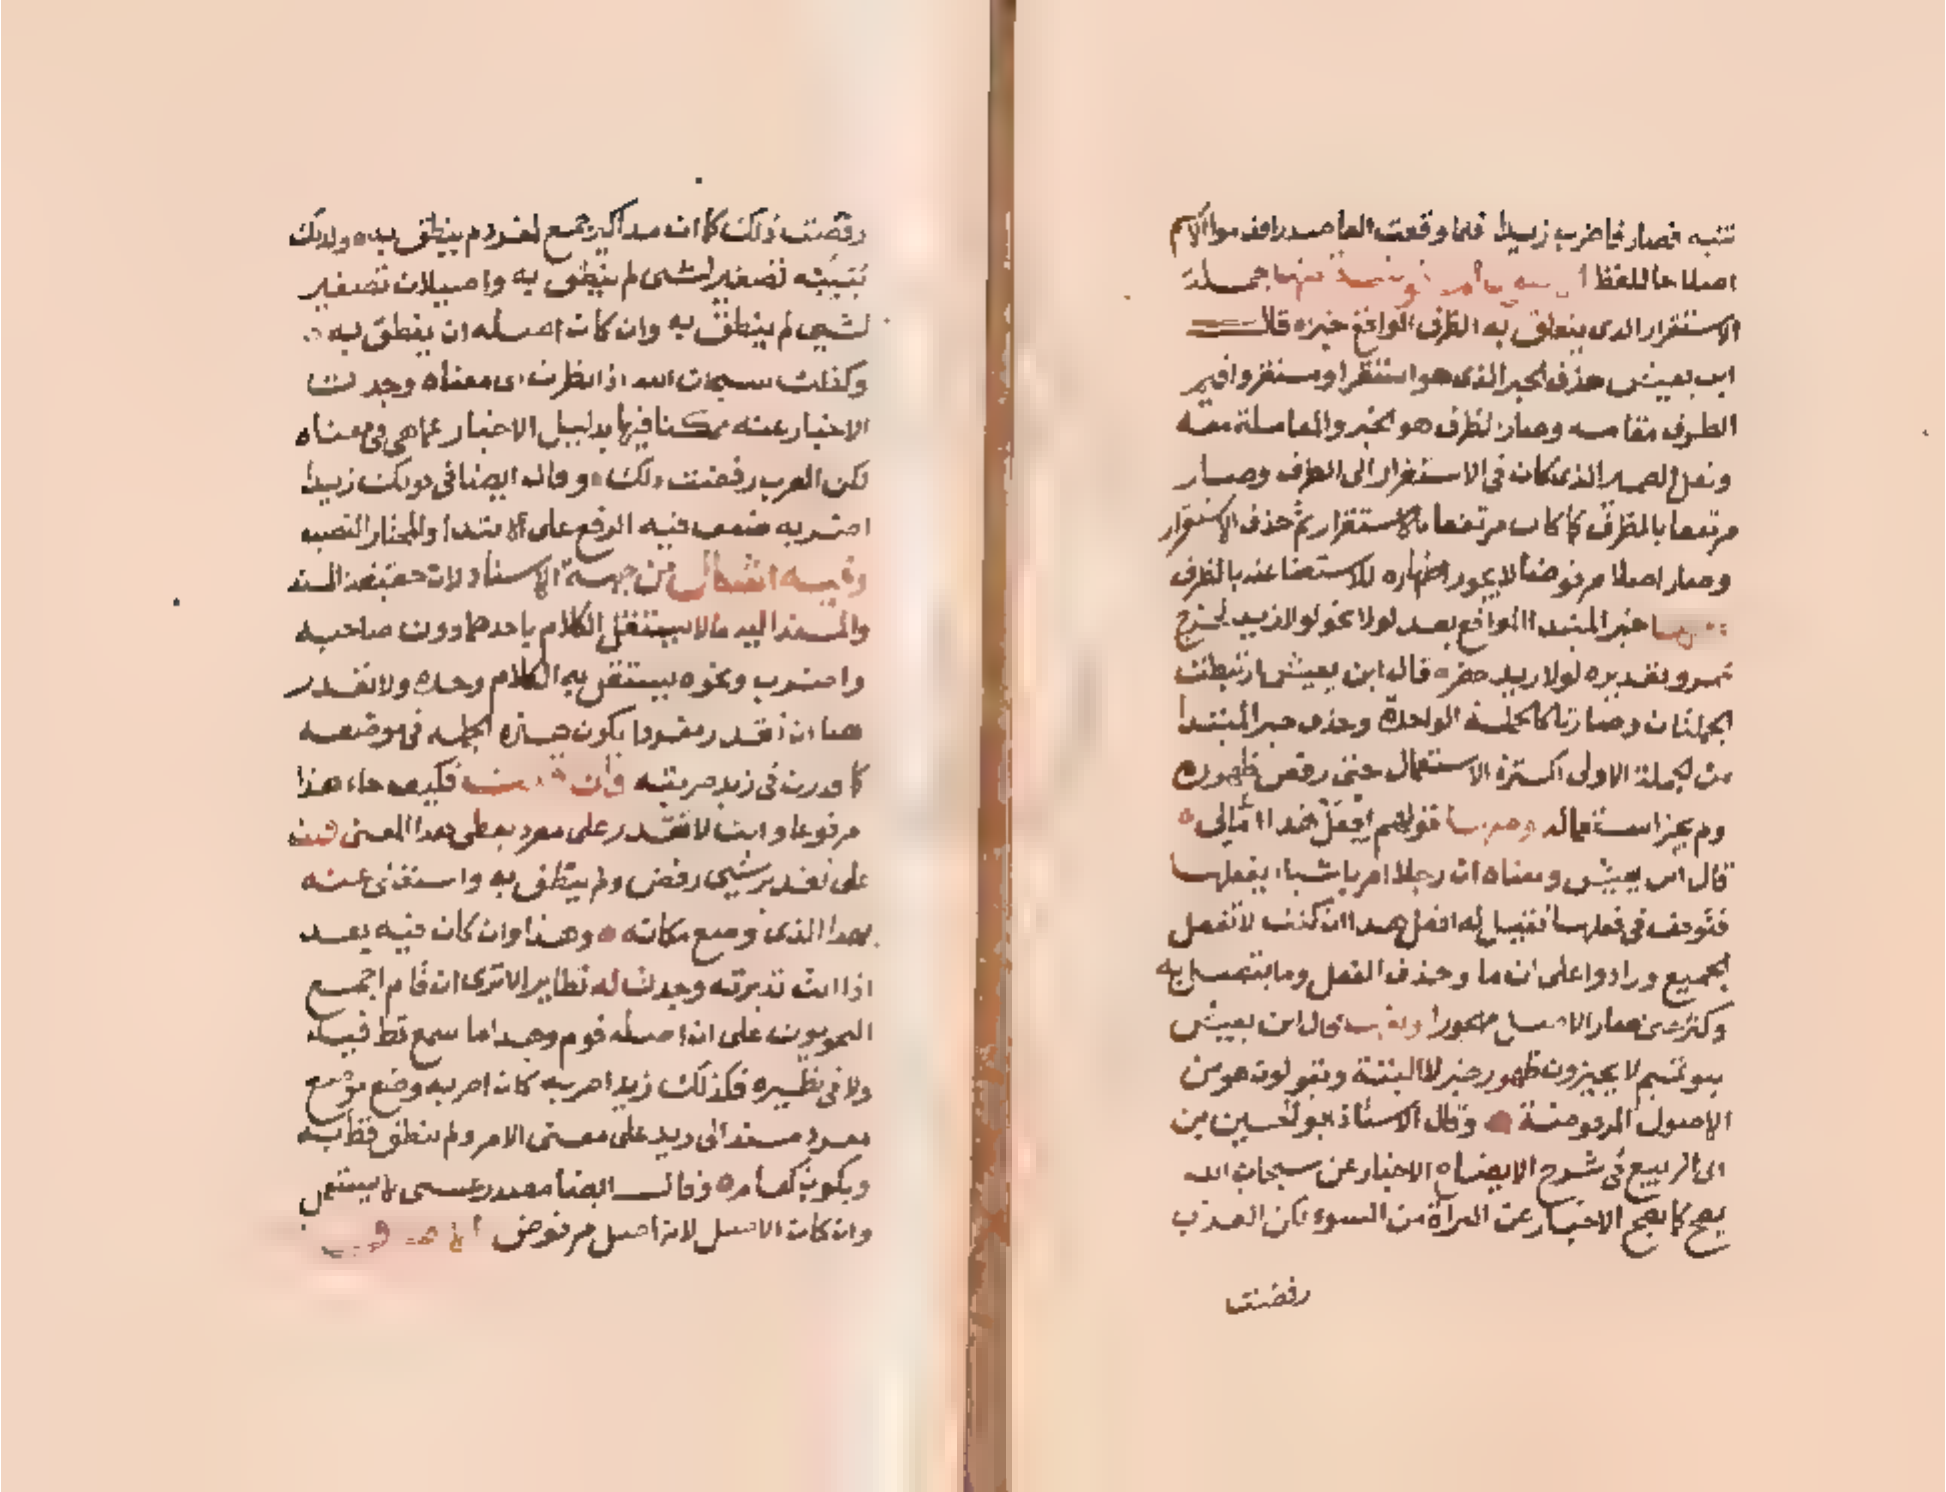 تنبه فصار فاضرب زيدا فلما وقعت الفا صدرا قدموا الاسم
اصلاحا للفظ جملة
الاستقرار الذى يتعلق به الظرف الواقع خبرا قال
ابن يعيش حذف الخبر الذى هو استقر او مستقر واقيم
الظرف مقامه وصار الظرف هو الخبر والمعاملة معه
ونقل الضمير الذى كان فى الاستقرار الى الظرف وصار
مرتفعا بالظرف كما كان مرتفعا بالاستقرار ثم حذف الاستقرار
وصار اصلا مرفوضا لا يجوز اظهاره للاستغنا عنه بالظرف
خبر المبتدا الواقع بعد لولا نحو لولا زيد لخرج
عمرو تقديره لولا زيد حضره قال ابن يعيش ارتبطت
الجملتان وصارتا كالجملة الواحدة وحذف خبر المبتدا
من الجملة الاولى لكثرة الاستعمال حتى رفض ظهوره
ولم يجز استعماله ومنها قولهم افعل هذا امالى
قال ابن يعيش ومعناه ان رجلا امر باشيا يفعلها
فتوقف فى فعلها فقيل له افعل هذا ان كنت لا تفعل
الجميع وزادوا على ان ما وحذف الفعل وما يتصل به
وكثر حتى صار الاصل مهجورا قال ابن يعيش
بنو تميم لا يجيزون ظهور خبر لا البتة ويقولون هو من
الاصول المرفوضة وقال الاستاذ ابو الحسين بن
ابى الربيع فى شرح الايضاح الاخبار عن سبحان الله
يصح كما يصح الاخبار عن البراة من السوء لكن العرب
رفضت
رفضت ذلك كما ان مذاكير جمع لمفرد لم ينطق به ولذلك
لييلية تصغير لشى لم ينطق به واصيلان تصغير
لشى لم ينطق به وان كان اصله ان ينطق به
وكذلك سبحان الله اذا نظرت الى معناه وجدت
الاخبار عنه ممكنا فيها بدليل الاخبار عما هى فى معناه
لكن العرب رفضت ذلك وقال ايضا فى قولك زيدا
اضربه ضعف فيه الرفع على الابتدا والمختار النصب
وفيه اشكال من جهة الاسناد لان حقيقة المسند
والمسند اليه مالا يستقل الكلام باحدهما دون صاحبه
واضرب ونحوه يستقل به الكلام وحده ولا تقدر
هنا ان تقدر مفردا يكون هذه الجملة فى موضعه
كما قدرت فى زيد ضربته فان قلت فكيف جاء هذا
مرفوعا وانت لا تقدر على مفرد يعطى هذا المعنى قلت
على تقدير شى رفض ولم ينطق به واستغنى عنه
بهذا الذى وضع مكانه وهذا وان كان فيه بعد
اذا انت تدبرته وجدت له نظاير الا ترى ان قام اجمع
النحويون على ان اصله قوم وهذا ما سمع قط فيه
ولا فى نظيره فكذلك زيد اضربه كان اضربه وضع موضع
مفرد مسند الى زيد على معنى الامر ولم ينطق قط به
ويكون كما مر وقال ايضا مصدر عسى لا يستعمل
وان كان الاصل لانه اصل مرفوض